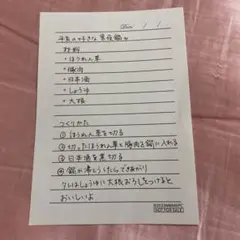 Date / /
の好きな常夜鍋
材料
・ほうれん草
・豚肉
・日本酒
・しょうゆ
・大根
つくりかた
① ほうれん草を切る
② 切ったほうれん草と豚肉を鍋に入れる
③ 日本酒を
④ 鍋が沸とうしたらできあがり
しょうゆに大根おろしをつけると
おいしいよ